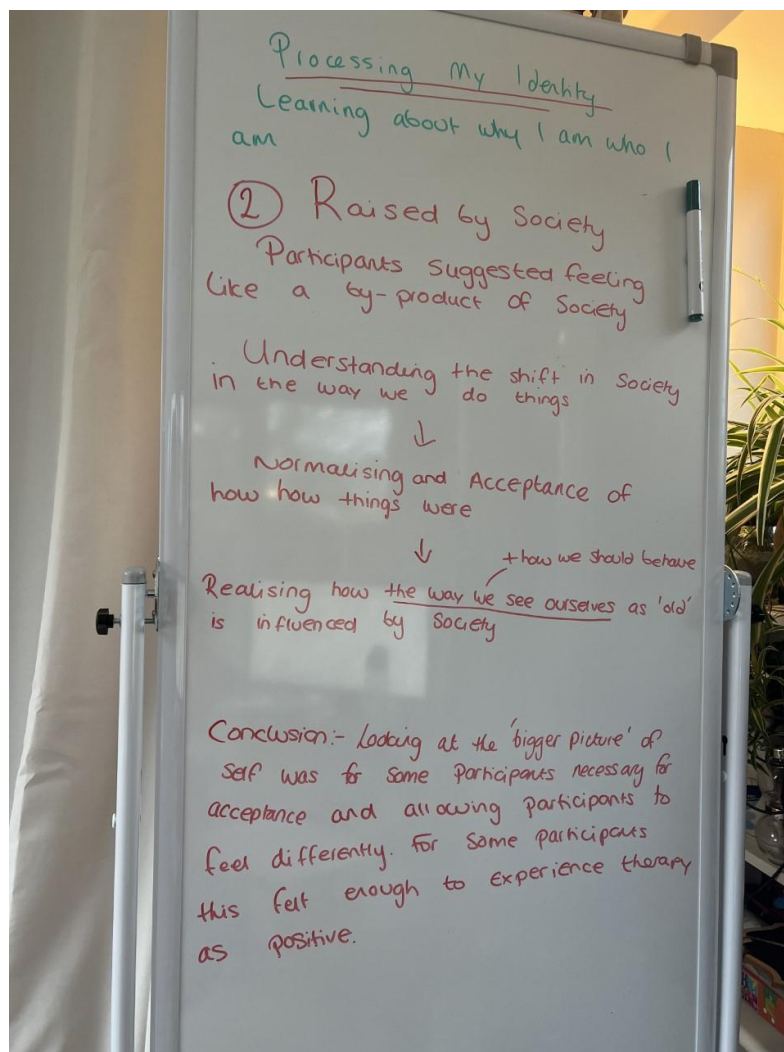 Processing My Identity
Learning about why I am who I
am
2 Raised by Society
Participants suggested feeling
like a by-product of Society
Understanding the shift in Society
in the way we do things
↓
Normalising and Acceptance of
how how things were
↓
+ how we should behave
Realising how the way we see ourselves as 'old'
is influenced by Society
Conclusion:- Looking at the 'bigger picture' of
self was for some participants necessary for
acceptance and allowing participants to
feel differently. For some participants
this felt enough to experience therapy
as positive.